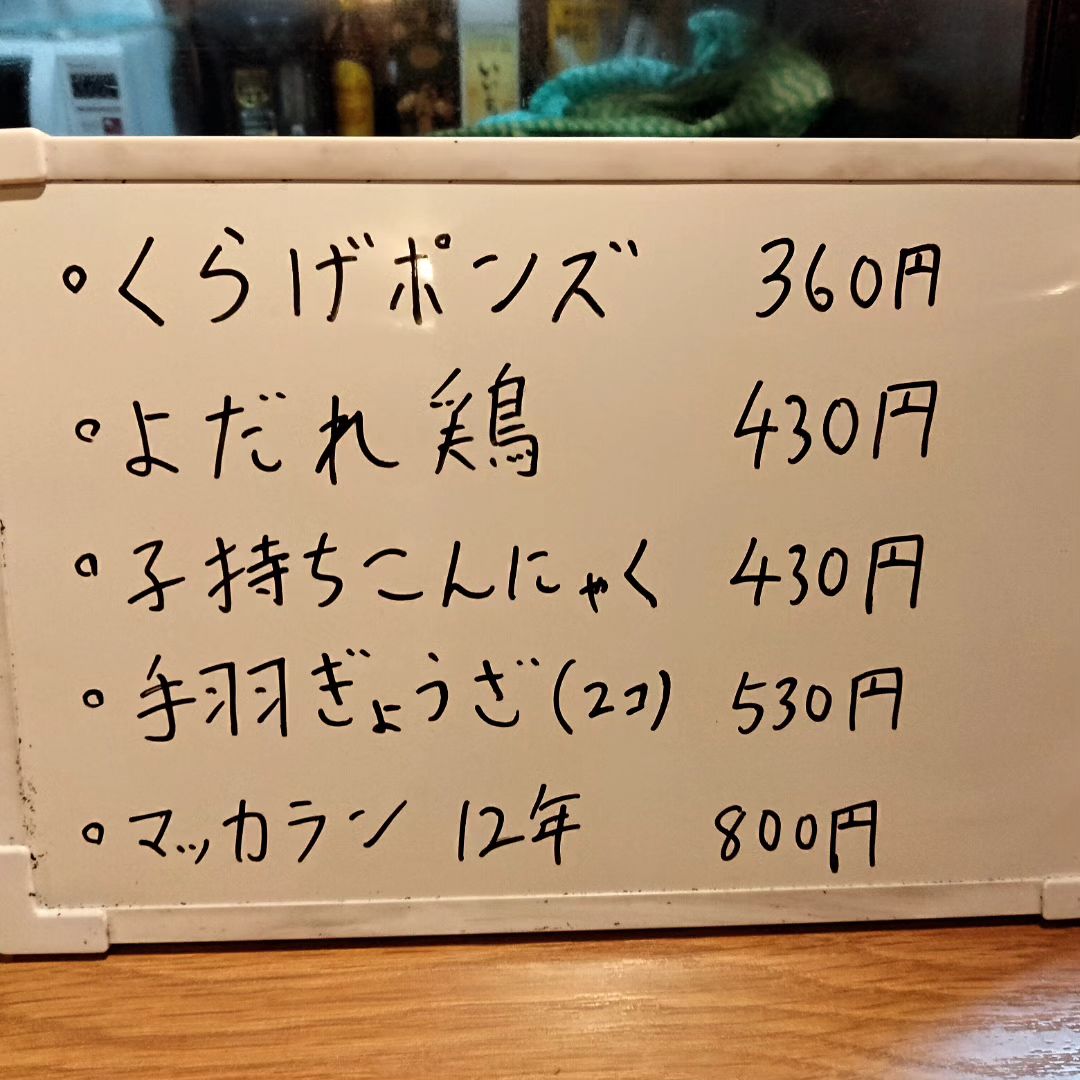 ・くらげポンズ 360円
・よだれ鶏 430円
・子持ちこんにゃく 430円
・手羽ぎょうざ(2コ) 530円
・マッカラン 12年 800円